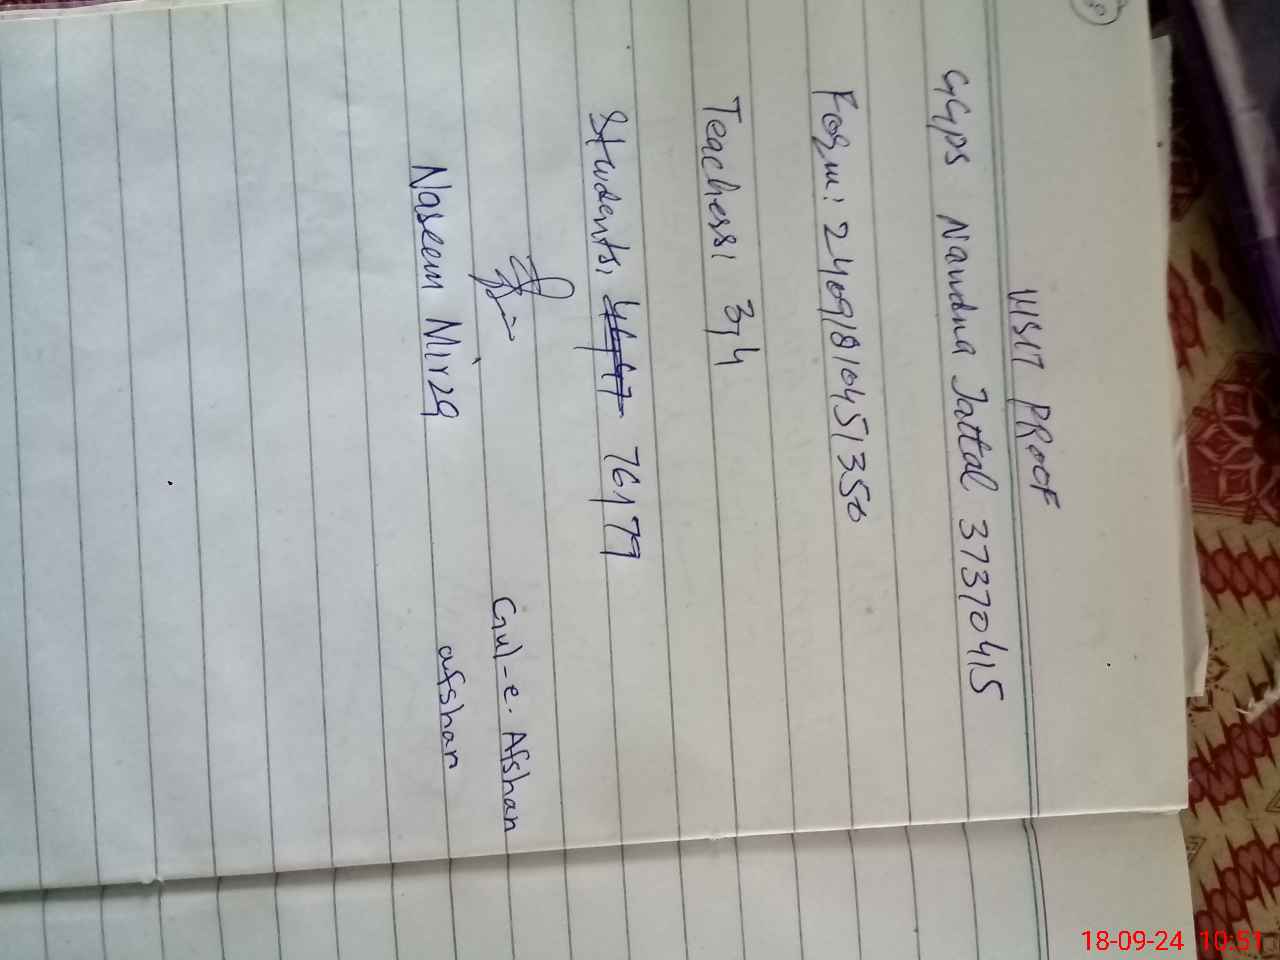 VISIT PROOF
GGPS Nandna Jattal 37370415
Form: 24091810451350
Teachers: 3,4
Students: 76,79
Gul-e-Afshan
Naseem Mirza
afshan
18-09-24 10:51